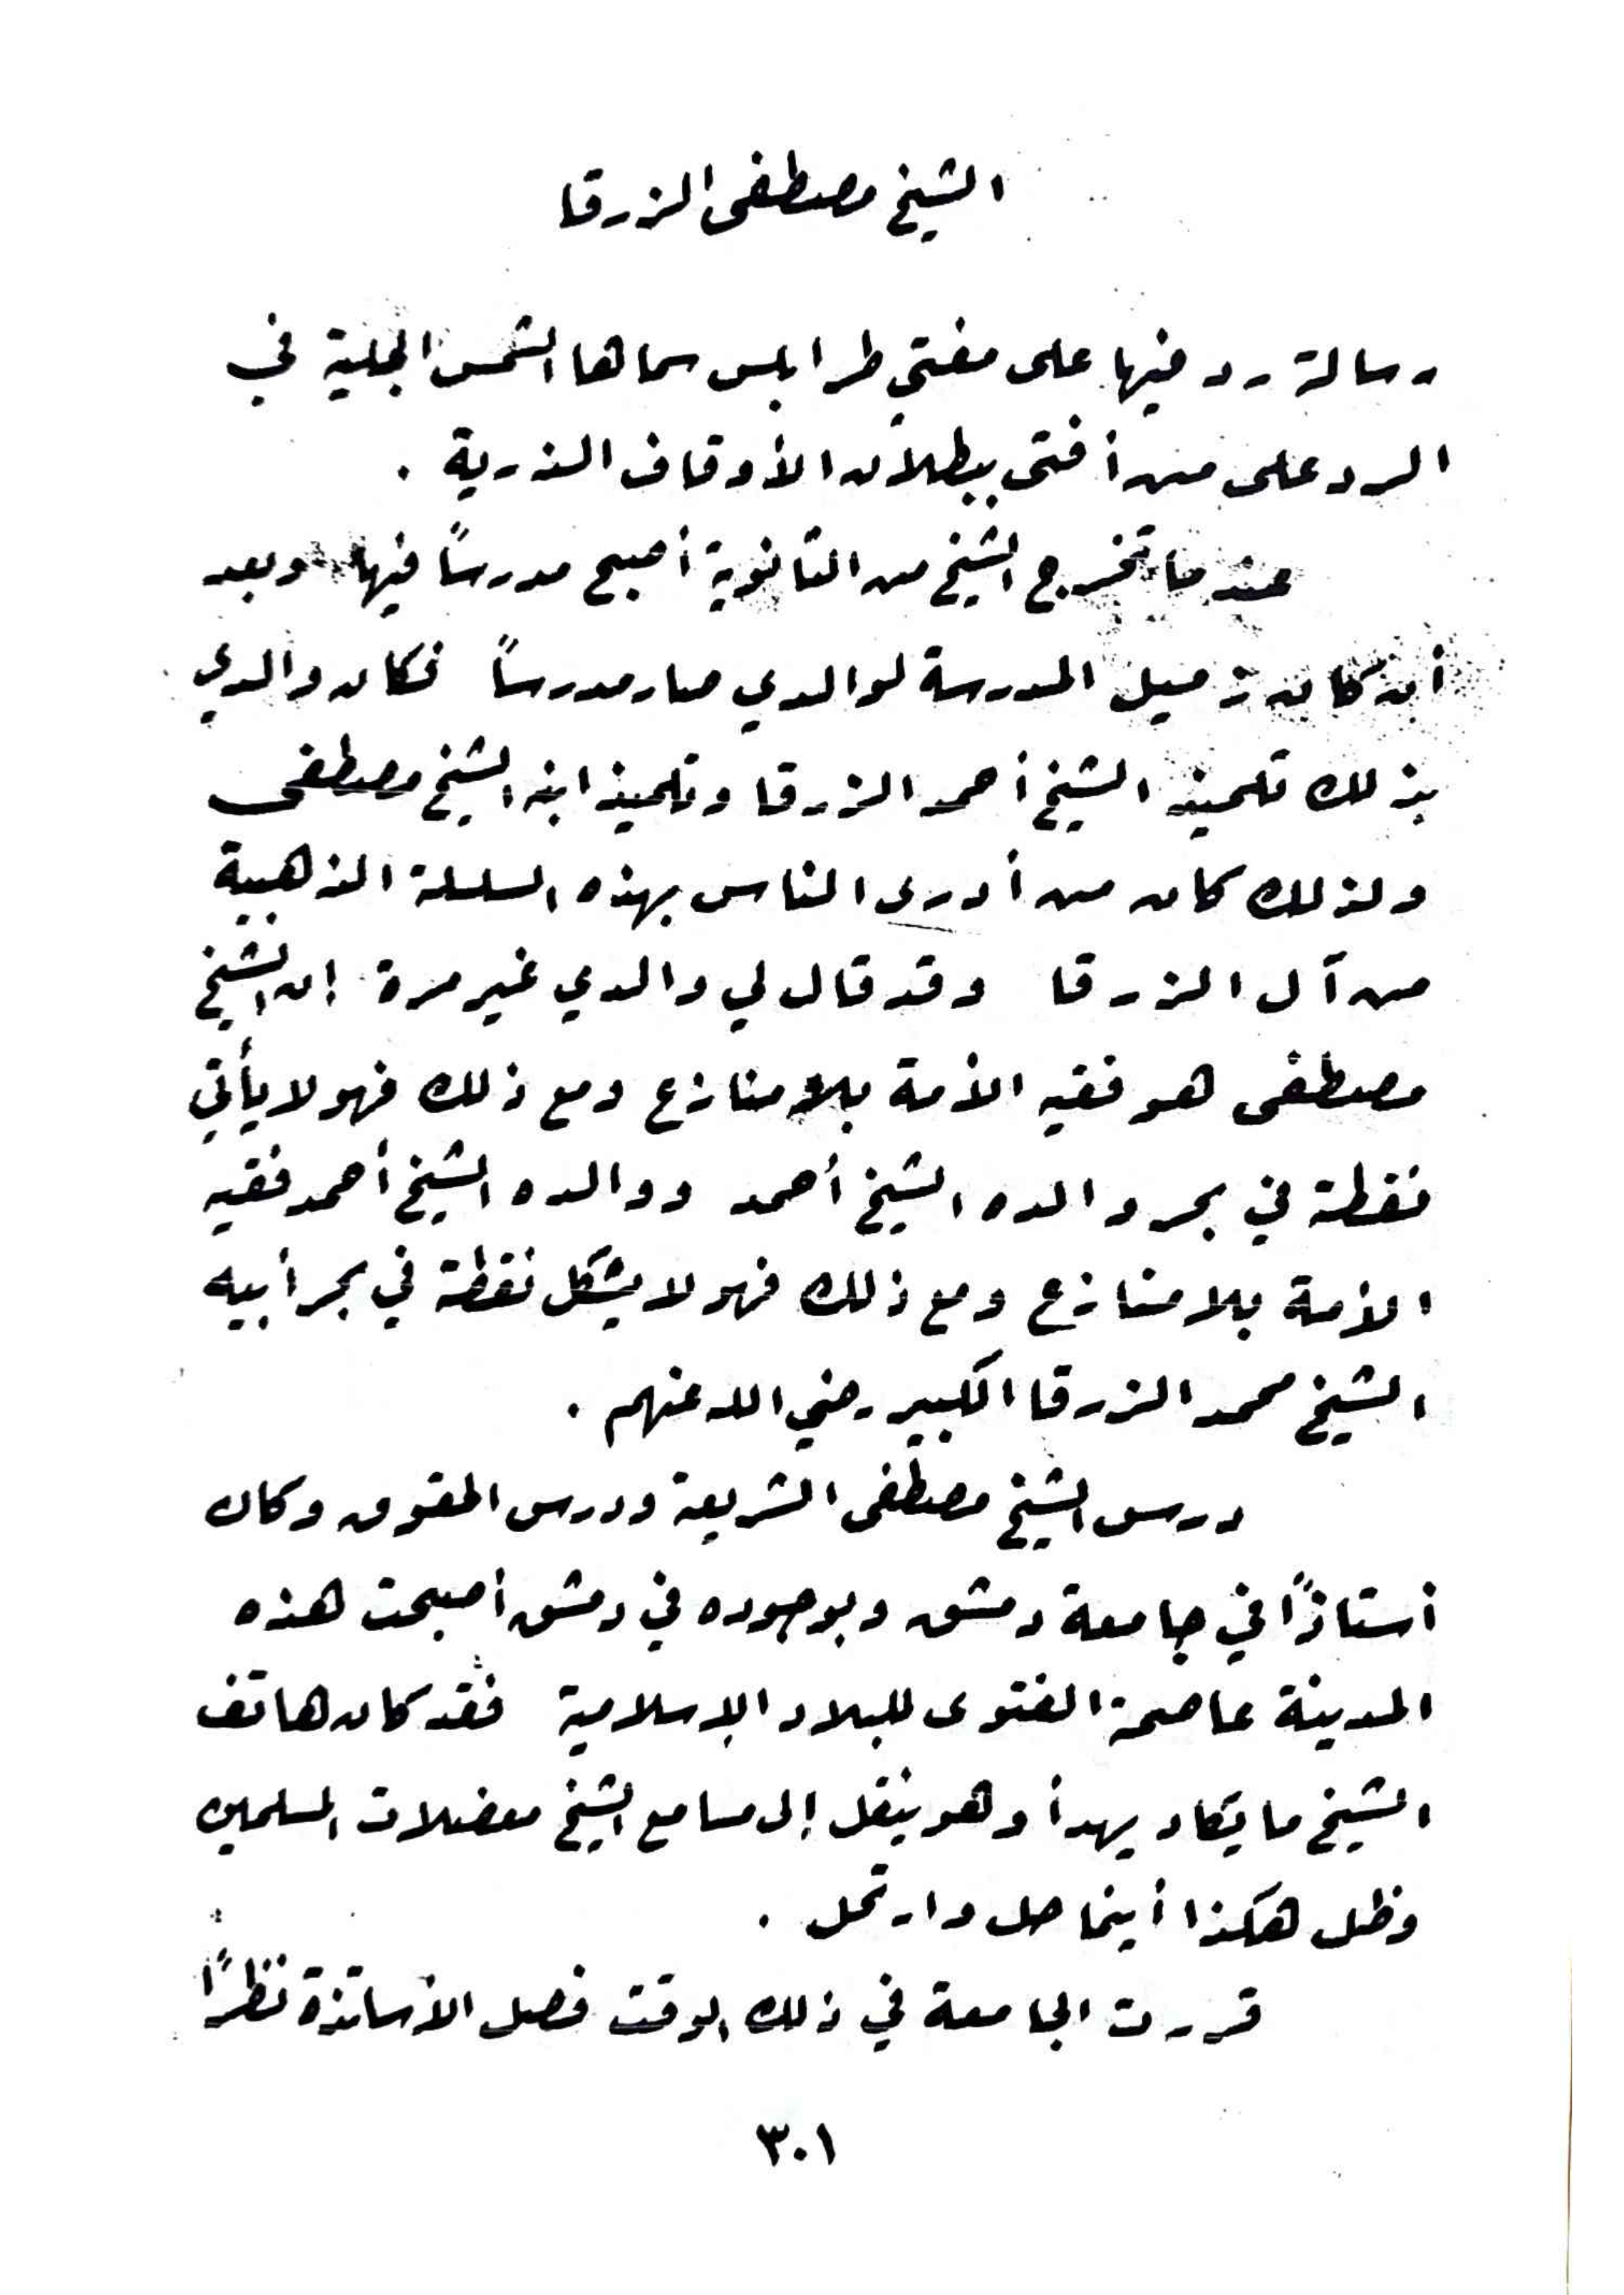 الشيخ مصطفى الزرقا
رسالة رد فيها على مفتي طرابلس سماها الشمس الجلية في
الرد على من أفتى ببطلان الأوقاف الذرية .
عندما تخرج الشيخ من الثانوية أصبح مدرساً فيها وبعد
أن كان زميل المدرسة لوالدي صار مدرساً فكان والدي
بذلك تلميذ الشيخ أحمد الزرقا وتلميذ ابنه الشيخ مصطفى
ولذلك كان من أدرى الناس بهذه السلسلة الذهبية
من آل الزرقا وقد قال لي والدي غير مرة إن الشيخ
مصطفى هو فقيه الأمة بلا منازع ومع ذلك فهو لا يأتي
نقطة في بحر والده الشيخ أحمد ووالده الشيخ أحمد فقيه
الأمة بلا منازع ومع ذلك فهو لا يشكل نقطة في بحر أبيه
الشيخ محمد الزرقا الكبير رضي الله عنهم .
درس الشيخ مصطفى الشريعة ودرس الحقوق وكان
أستاذاً في جامعة دمشق وبوجوده في دمشق أصبحت هذه
المدينة عاصمة الفتوى للبلاد الإسلامية فقد كان هاتف
الشيخ ما يكاد يهدأ وهو ينقل إلى مسامع الشيخ معضلات المسلمين
وظل هكذا أينما حل وارتحل .
قررت الجامعة في ذلك الوقت فصل الأساتذة نظراً
٣٠١